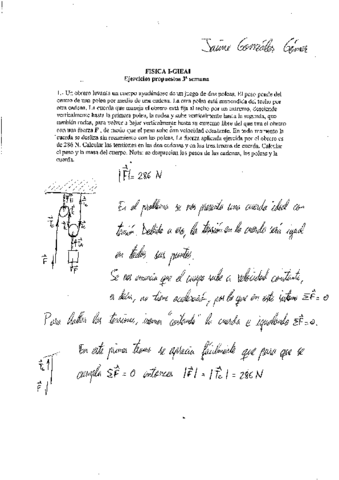 Jaime González Gómez
FISICA I-GIEAI
Ejercicios propuestos 3ª semana
1.- Un obrero levanta un cuerpo ayudándose de un juego de dos poleas. El peso pende del
centro de una polea por medio de una cadena. La otra polea está suspendida del techo por
otra cadena. La cuerda que maneja el obrero está fija al techo por un extremo, desciende
verticalmente hasta la primera polea, la rodea y sube verticalmente hasta la segunda, que
también rodea, para volver a bajar verticalmente hasta su extremo libre del que tira el obrero
con una fuerza F, de modo que el peso sube con velocidad constante. En todo momento la
cuerda se desliza sin rozamiento con las poleas. La fuerza aplicada ejercida por el obrero es
de 286 N. Calcular las tensiones en las dos cadenas y en los tres tramos de cuerda. Calcular
el peso y la masa del cuerpo. Nota: se desprecian los pesos de las cadenas, las poleas y la
cuerda.
|F| = 286 N
En el problema se nos presenta una cuerda ideal con
tensión. Debido a eso, la tensión en la cuerda será igual
en todos sus puntos.
Se nos enuncia que el cuerpo sube a velocidad constante,
es decir, no tiene aceleración, por lo que en este sistema ΣF = 0
Para hallar las tensiones, iremos "cortando" la cuerda e igualando ΣF = 0.
En este primer tramo se aprecia fácilmente que para que se
cumpla ΣF = 0 entonces |F| = |T| = 286 N
F